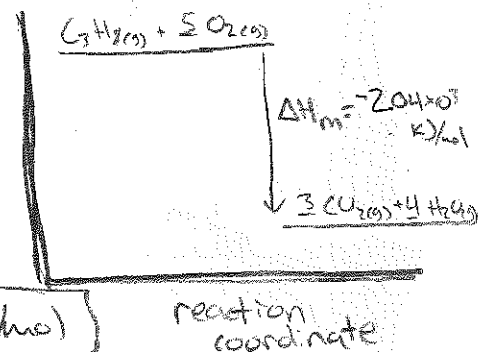 C3H8(g) + 5 O2(g)
ΔHm = -2.04×10³
kJ/mol
3 CO2(g) + 4 H2O(g)
/mo)
reaction
coordinate